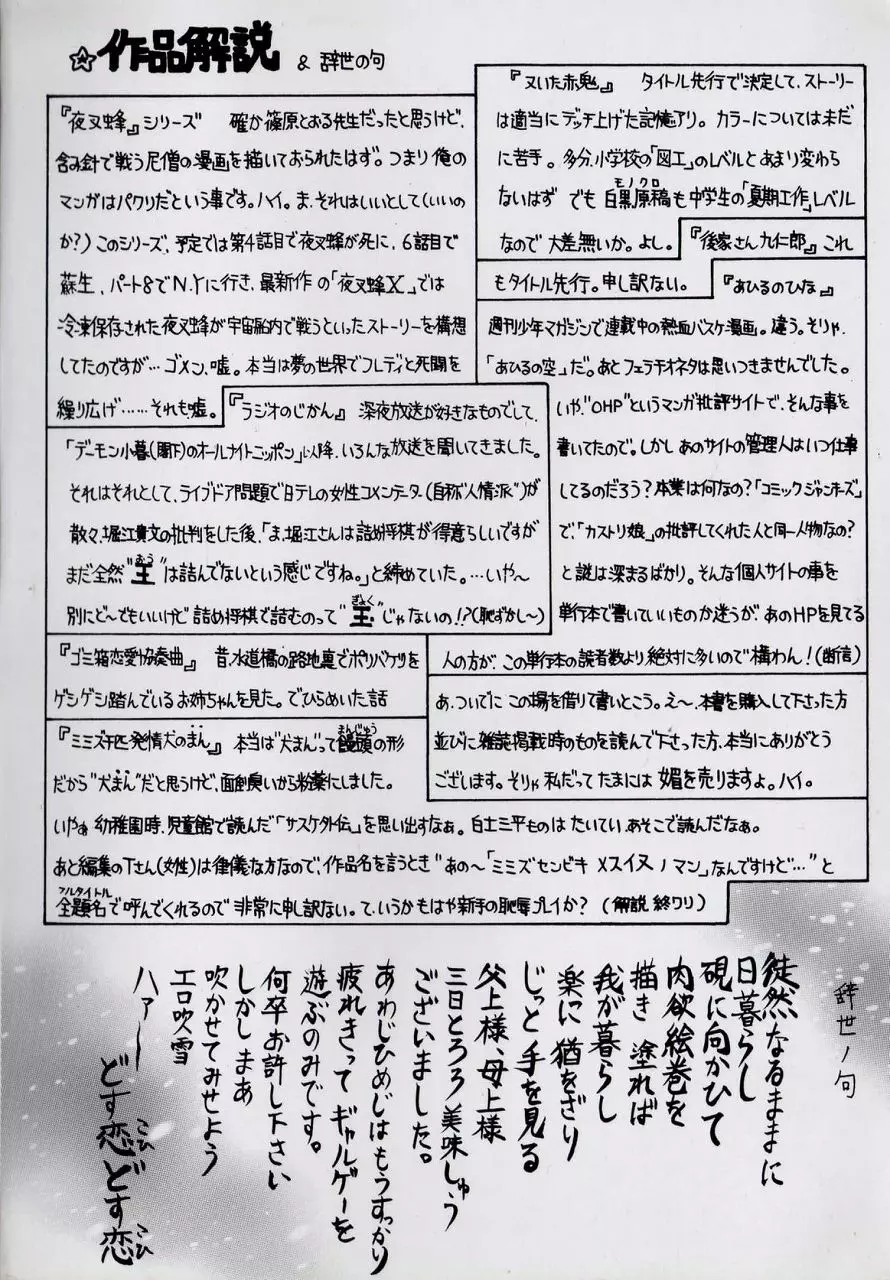 ☆作品解説 & 辞世の句
『夜叉蜂』シリーズ 確か篠原とおる先生だったと思うけど、
含み針で戦う尼僧の漫画を描いておられたはず。つまり俺の
マンガはパクリだという事です。ハイ。ま、それはいいとして(いいの
か?)このシリーズ、予定では第4話目で夜叉蜂が死に、6話目で
蘇生、パート8でN.Yに行き、最新作の「夜叉蜂X」では
冷凍保存された夜叉蜂が宇宙船内で戦うといったストーリーを構想
してたのですが…ゴメン、嘘。本当は夢の世界でフレディと死闘を
繰り広げ……それも嘘。
『ラジオのじかん』 深夜放送が好きなものでして、
「デーモン小暮(閣下)のオールナイトニッポン」以降、いろんな放送を聞いてきました。
それはそれとして、ライブドア問題で日テレの女性コメンテーター(自称“人情派”)が
散々、堀江貴文の批判をした後、「ま、堀江さんは詰め将棋が得意らしいですが
まだ全然“王(おう)”は詰んでないという感じですね。」と締めていた。…いや〜
別にど〜でもいいけど 詰め将棋で詰むのって“玉(ぎょく)”じゃないの!?(恥ずかし〜)
『ゴミ箱恋愛協奏曲』 昔、水道橋の路地裏でポリバケツを
ゲシゲシ踏んでいるお姉ちゃんを見た。でひらめいた話
『ミミズ千匹発情犬のまん』 本当は“犬まん”って饅頭(まんじゅう)の形
だから“犬まん”だと思うけど、面倒臭いから粉薬にしました。
いやぁ 幼稚園時、児童館で読んだ「サスケ外伝」を思い出すなぁ。白土三平ものは たいてい、あそこで読んだなぁ。
あと編集のTさん(女性)は律儀な方なので、作品名を言うとき“あの〜「ミミズセンビキ メスイヌノマン」なんですけど…”と
全題名(フルタイトル)で呼んでくれるので 非常に申し訳ない。て、いうかもはや新手の恥辱プレイか? (解説 終ワリ)
『又いた赤鬼』 タイトル先行で決定して、ストーリー
は適当にデッチ上げた記憶アリ。カラーについては未だ
に苦手。多分、小学校の「図工」のレベルとあまり変わら
ないはず でも 白黒原稿(モノクロ)も中学生の「夏期工作」レベル
なので 大差無いか。よし。
『後家さん九仁郎』 これ
もタイトル先行。申し訳ない。
『あひるのひな』
週刊少年マガジンで連載中の熱血バスケ漫画。違う。そりゃ、
「あひるの空」だ。あとフェラチオネタは思いつきませんでした。
いや、“OHP”というマンガ批評サイトで、そんな事を
書いてたので。しかし あのサイトの管理人はいつ仕事
してるのだろう?本業は何なの?「コミックジャンキーズ」
で、「カストリ娘」の批評してくれた人と同一人物なの?
と謎は深まるばかり。そんな個人サイトの事を
単行本で書いていいものか迷うが、あのHPを見てる
人の方が、この単行本の読者数より絶対に多いので構わん!(断信)
あ、ついでに この場を借りて書いとこう。え〜、本書を購入して下さった方
並びに雑誌掲載時のものを読んで下さった方、本当にありがとう
ございます。そりゃ 私だって たまには 媚を売りますよ。ハイ。
辞世ノ句
徒然なるままに
日暮らし
硯に向かひて
肉欲絵巻を
描き 塗れば
我が暮らし
楽に 猶をざり
じっと 手を見る
父上様、母上様
三日とろろ 美味しゅう
ございました。
あわじひめじはもうすっかり
疲れきって ギャルゲーを
遊ぶのみです。
何卒お許し下さい
しかしまあ
吹かせてみせよう
エロ吹雪
ハァー
どす恋(こひ)どす恋(こひ)